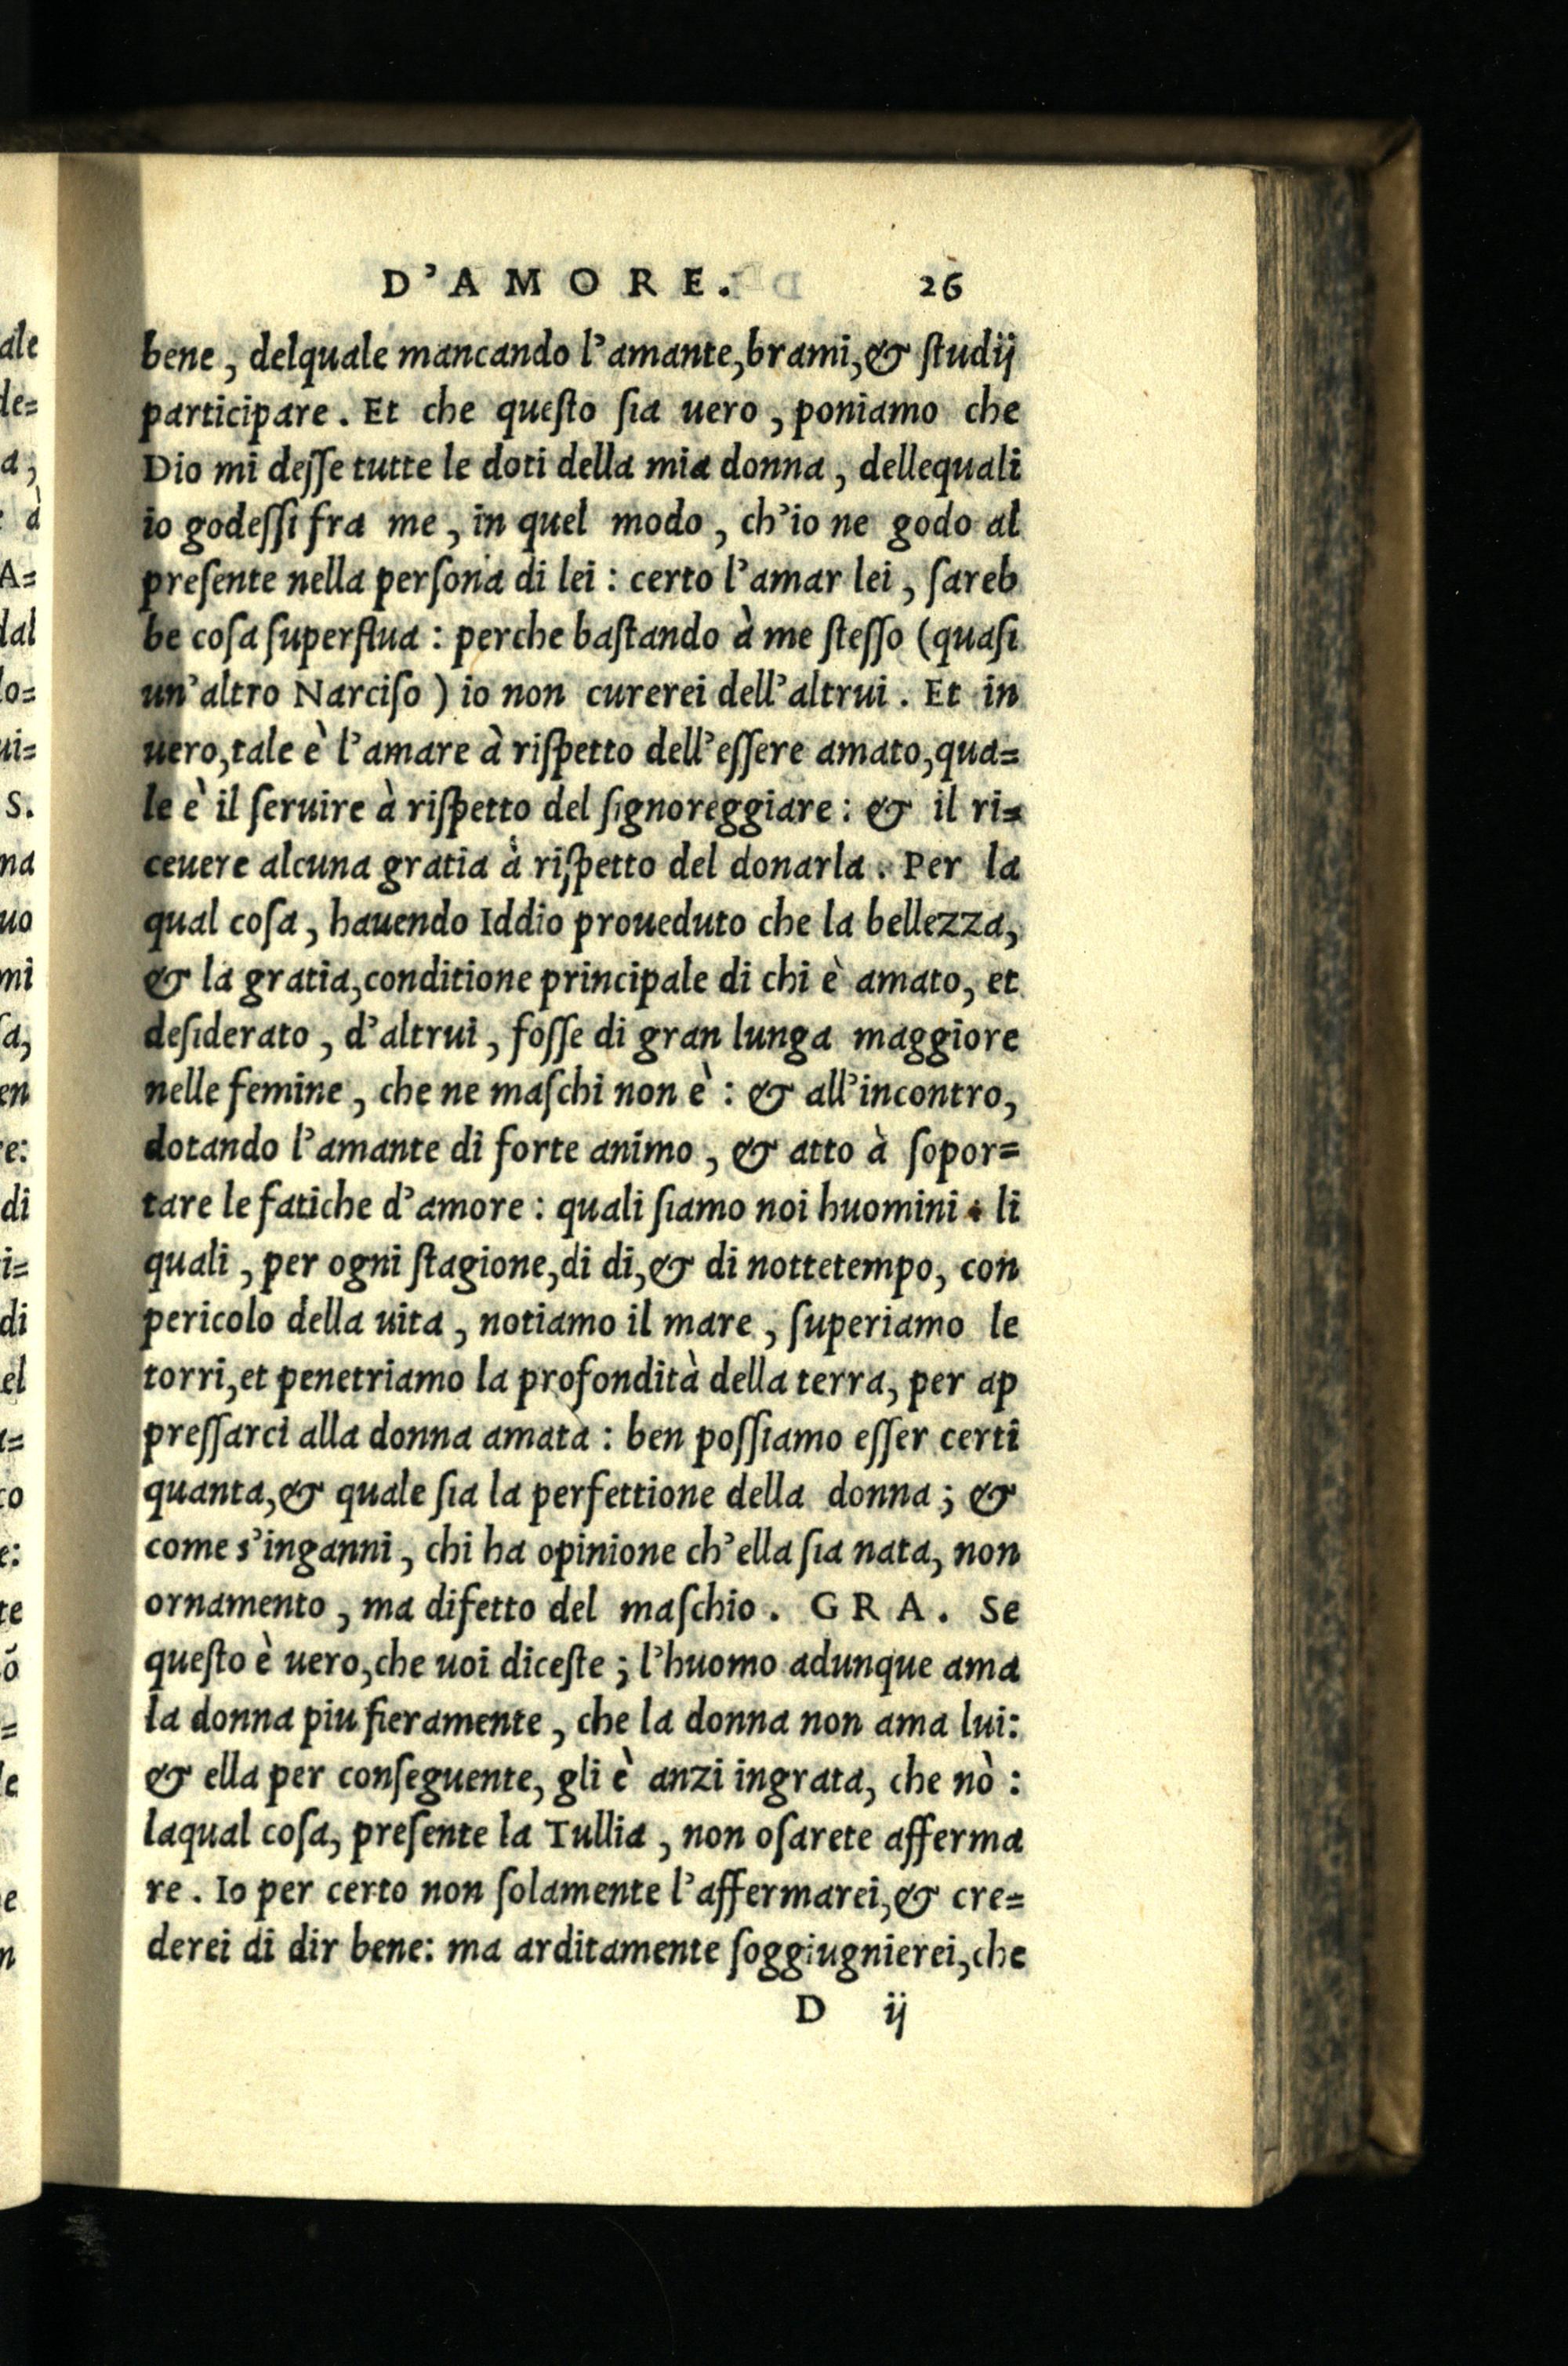 D'AMORE. 26
bene, delquale mancando l'amante, brami, & ſtudij
participare. Et che queſto ſia uero, poniamo che
Dio mi deſſe tutte le doti della mia donna, dellequali
io godeſſi fra me, in quel modo, ch'io ne godo al
preſente nella perſona di lei: certo l'amar lei, ſareb
be coſa ſuperflua: perche baſtando à me ſteſſo (quaſi
un'altro Narciſo) io non curerei dell'altrui. Et in
uero, tale è l'amare à riſpetto dell'eſſere amato, qua=
le è il ſeruire à riſpetto del ſignoreggiare: & il ri=
ceuere alcuna gratia à riſpetto del donarla. Per la
qual coſa, hauendo Iddio proueduto che la bellezza,
& la gratia, conditione principale di chi è amato, et
deſiderato, d'altrui, foſſe di gran lunga maggiore
nelle femine, che ne maſchi non è: & all'incontro,
dotando l'amante di forte animo, & atto à ſopor=
tare le fatiche d'amore: quali ſiamo noi huomini: li
quali, per ogni ſtagione, di di, & di nottetempo, con
pericolo della uita, notiamo il mare, ſuperiamo le
torri, et penetriamo la profondità della terra, per ap
preſſarci alla donna amata: ben poſſiamo eſſer certi
quanta, & quale ſia la perfettione della donna; &
come s'inganni, chi ha opinione ch'ella ſia nata, non
ornamento, ma difetto del maſchio. GRA. Se
queſto è uero, che uoi diceſte; l'huomo adunque ama
la donna piu fieramente, che la donna non ama lui:
& ella per conſeguente, gli è anzi ingrata, che nò:
laqual coſa, preſente la Tullia, non oſarete afferma
re. Io per certo non ſolamente l'affermarei, & cre=
derei di dir bene: ma arditamente ſoggiugnierei, che
D ij